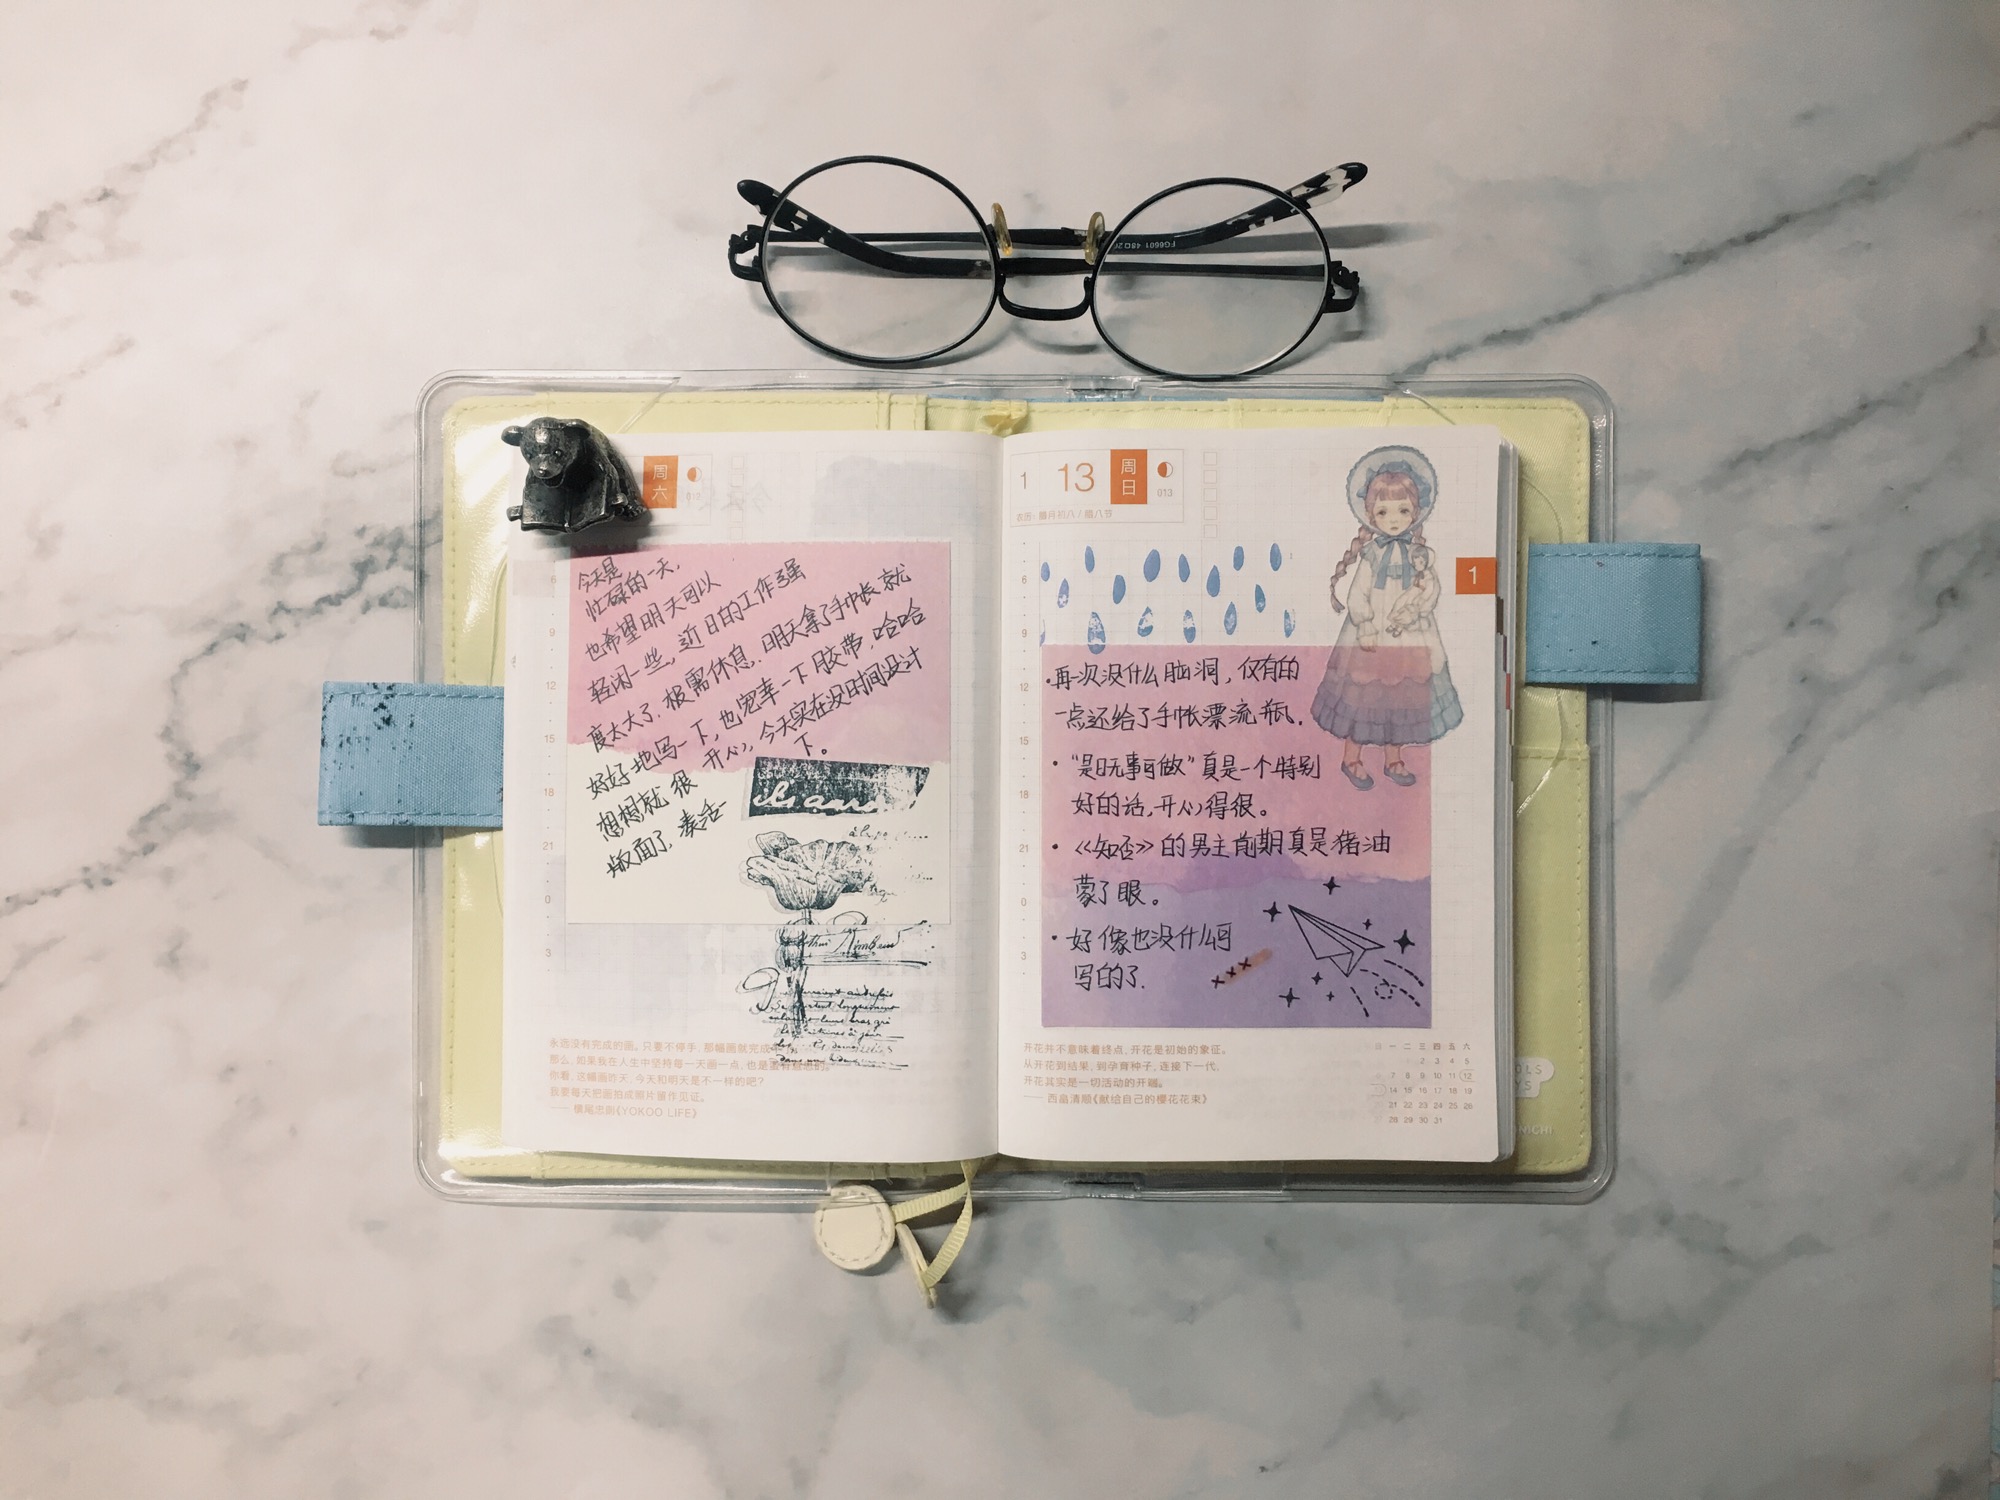 FG6601 48
周六
012
今天是
忙碌的一天,
也希望明天可以
轻闲一些, 近日的工作强
度太大了. 极需休息. 明天拿了手帐就
好好地写一下, 也宠幸一下胶带, 哈哈
想想就很开心, 今天实在没时间设计
版面了, 凑活一下。
6
9
12
15
18
21
0
3
Arthur Rimbaud
永远没有完成的画。只要不停手, 那幅画就完成
那么, 如果我在人生中坚持每一天画一点, 也是蛮有意思的。
你看, 这幅画昨天、今天和明天是不一样的吧?
我要每天把画拍成照片留作见证。
—— 横尾忠则《YOKOO LIFE》
1 13 周日
013
农历: 腊月初八 / 腊八节
1
6
9
12
15
18
21
0
3
·再次没什么脑洞, 仅有的
一点还给了手帐漂流瓶.
·“是日无事可做”真是一个特别
好的话, 开心得很。
·《知否》的男主前期真是猪油
蒙了眼。
·好像也没什么可
写的了.
开花并不意味着终点, 开花是初始的象征。
从开花到结果, 到孕育种子, 连接下一代,
开花其实是一切活动的开端。
—— 西畠清顺《献给自己的樱花花束》
日 一 二 三 四 五 六
1 2 3 4 5
6 7 8 9 10 11 12
13 14 15 16 17 18 19
20 21 22 23 24 25 26
27 28 29 30 31